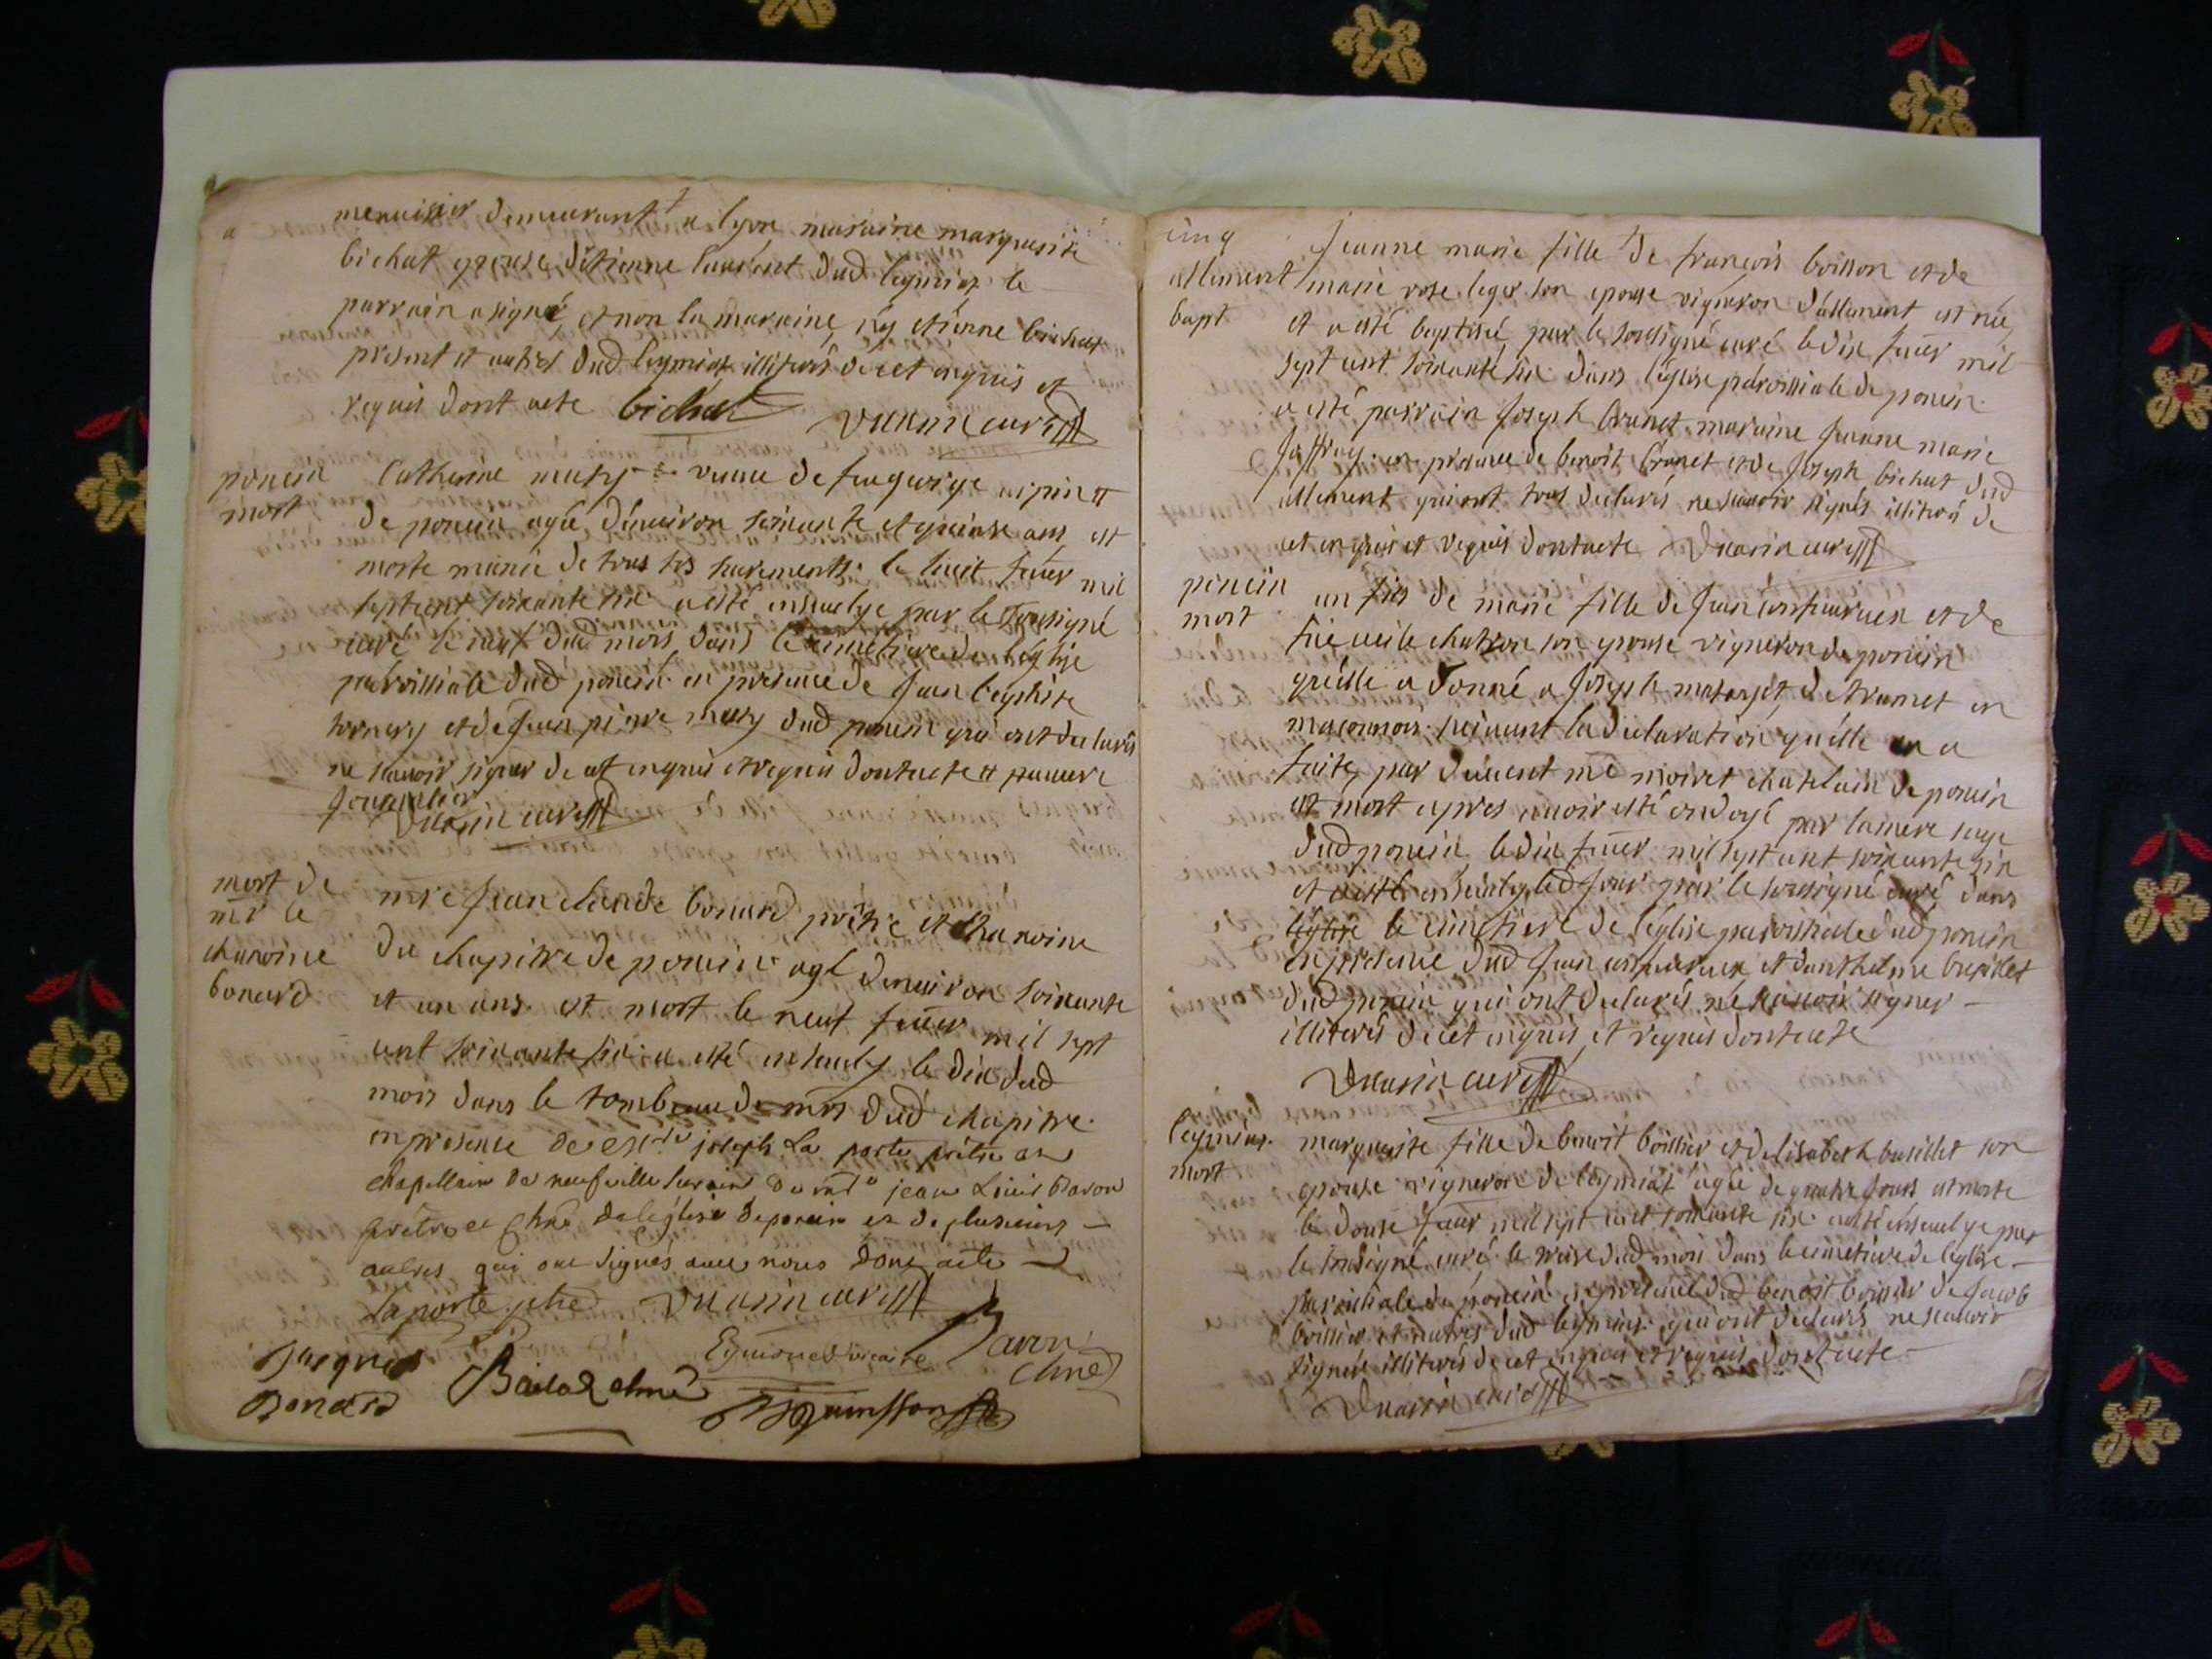 menuisier demeurant a lyon maraine marguerite
bichat epouse d'etienne laurent dud leymiat le
parrain a signé, et non la maraine, ny etienne bichat
present et autres dud leymiat illiterés de cet enquis et
requis dont acte bichat
curé
poncin
mort
Catherine mury veuve de feu
de poncin agée d'environ soixante et quinse ans est
morte munie de tous les sacrements le huit feuer mil
sept cent soixante six a esté ensevelye par le sousigné
curé le neuf dud mois dans le cimetiere de l'eglise
paroissiale dud poncin en presence de Jean baptiste
et de Jean pierre mury dud poncin qui ont declarés
ne scauoir signer de cet enquis et requis dont acte pauvre
Journalier
curé
mort de
mr le
chanoine
bonard
mre Jean claude bonard prêtre et chanoine
du chapitre de poncin agé denuiron soixante
et un ans est mort le neuf feuer mil sept
cent soixante six a esté ensevely le dix dud
mois dans le tombeau de mrs dud chapitre
en presence de joseph La porte prêtre
chapellain de neufville jean Louis Baron
prêtre et de léglise de poncin et de plusieurs
autres qui ont signés avec nous Dont acte
Laporte ptre curé
Baron
vicaire
Jacques
Bonard
cinq
allement
bapt
Jeanne marie fille de françois boisson et de
marie rose leger son epouse vigneron d'allement est née,
et a esté baptisée par le sousigné curé le dix feuer mil
sept cent soixante six dans l'église paroissiale de poncin
a esté parrain Joseph brunet maraine Jeanne marie
Jaffray en presence de benoit brunet et de Joseph bichat dud
allement qui ont tous declarés ne scauoir signés illiterés de
cet enquis et requis dont acte curé
poncin
mort
un fils de marie fille de Jean et de
chatron son epouse vigneron de poncin
qu'elle a donné a Joseph de tramet en
maconnois suivant la declaration qu'elle en a
faite, par deuent me moiret chatelain de poncin
est mort apres auoir esté ondoyé par la mere sage
dud poncin le dix feuer mil sept cent soixante six
et a esté ensevely led Jour par le sousigné curé dans
léglise le cimetiere de l'église paroissiale dud poncin
en presence dud Jean et d'anthelme
dud poncin qui ont declarés ne scauoir signer
illiterés de cet enquis et requis dont acte
curé
leymiat
mort
marguerite fille de benoit boissier et d'elisabeth son
epouse vigneron de leymiat agée de quatre Jours est morte
le douse feuer mil sept cent soixante six a esté ensevelye par
le sousigné curé le treise dud mois dans le cimetiere de l'eglise
paroissiale de poncin en presence dud benoit boissier de Jacob
boissier et autres dud leymiat qui ont declarés ne scauoir
signer illiterés de cet enquis et requis dont acte
curé